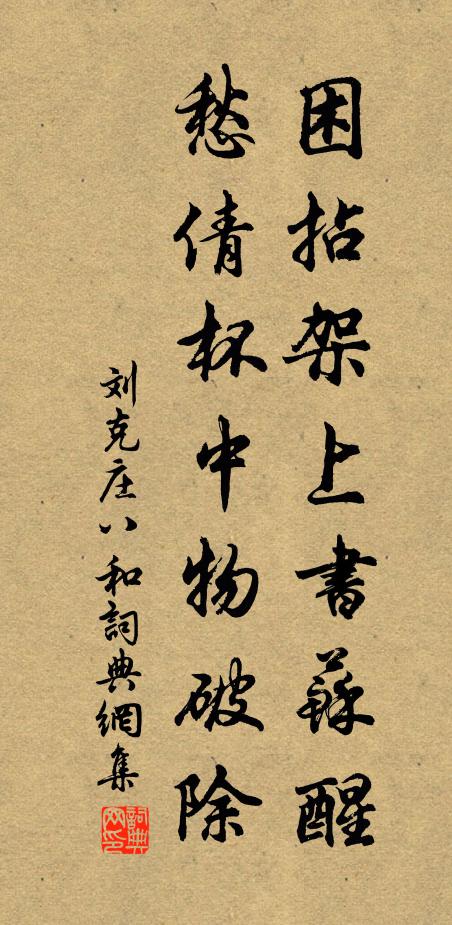 困拈架上書蘇醒
愁倩杯中物破除
刘克庄八和詞典網集
詞典
网印